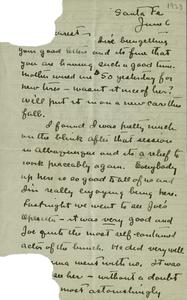 Santa Fe
June 6
1929
your good letters and its fine that
you are having such a good time.
Mother wired me $50 yesterday for
new tire - wasn't it nice of her?
Will put it on a new car this
fall.
I found I was pretty much
on the blink after that session
in Albuquerque and its a relief to
work peaceably again. Everybody
up here is so good to all of us and
I'm really enjoying being here.
Last night we went to see Joe's
- it was very good and
Joe quite the most self-contained
actor of the bunch. He did very well
went with us. It was
see her - without a doubt
most astonishingly